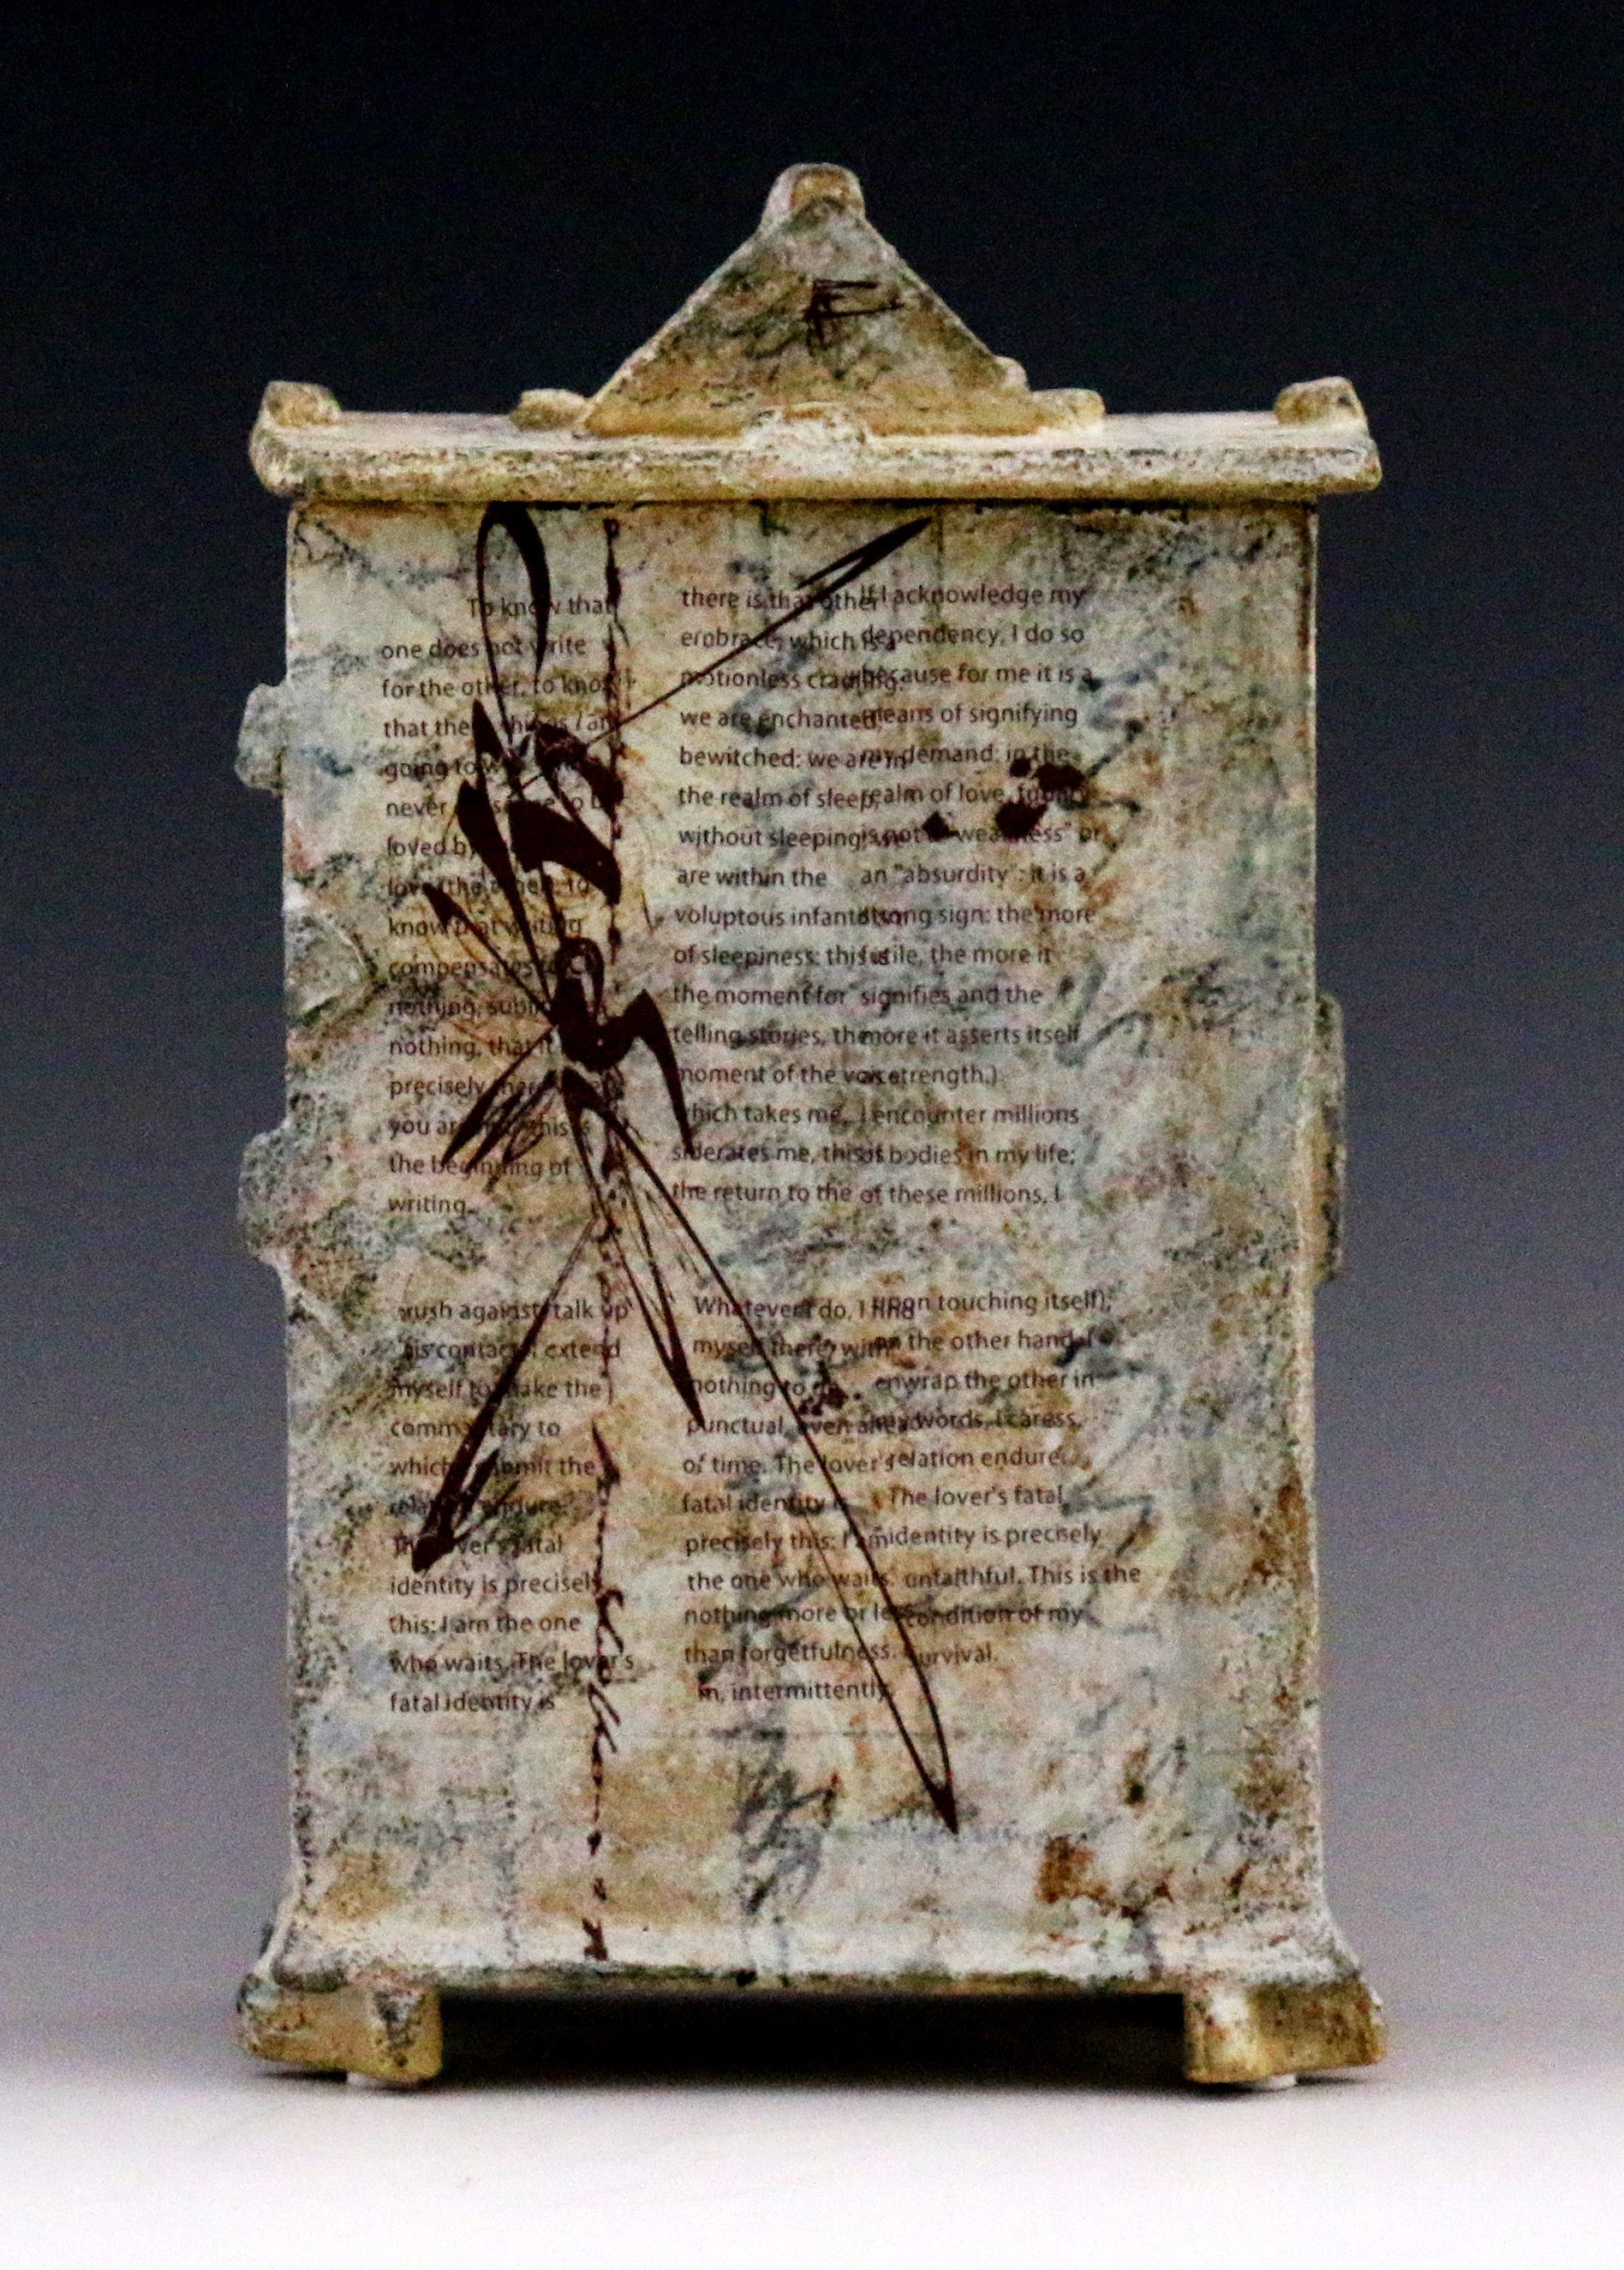 F
To know that
one does not write
for the other, to know
that these things I am
going to
never to be
loved by
love (the other), to
know that writing
compensates for
nothing,
nothing, that it
precisely there where
you are this is
the beginning of
writing.
there is that other
embrace, which is a
motionless cradling:
we are enchanted,
bewitched: we are in
the realm of sleep,
without sleeping; we
are within the
voluptuous infantilism
of sleepiness: this is
the moment for
telling stories, the
moment of the voice
which takes me,
siderates me, this is
the return to the
If I acknowledge my
dependency, I do so
because for me it is a
means of signifying
my demand: in the
realm of love, futility
is not a "weakness" or
an "absurdity": it is a
strong sign: the more
futile, the more it
signifies and the
more it asserts itself
as strength.)
I encounter millions
of bodies in my life;
of these millions, I
rush against, talk up
this contact, I extend
myself to make the
commentary to
which I submit the
relation endure
The lover's fatal
identity is precisely
this: I am the one
who waits. The lover's
fatal identity is
Whatever I do, I find
myself there, with
nothing to do,
punctual, even ahead
of time. The lover's
fatal identity is
precisely this: I am
the one who waits.
nothing more or less
than forgetfulness.
m, intermittently,
upon touching itself);
on the other hand, I
enwrap the other in
my words, I caress,
relation endure.
The lover's fatal
identity is precisely
unfaithful. This is the
condition of my
survival.